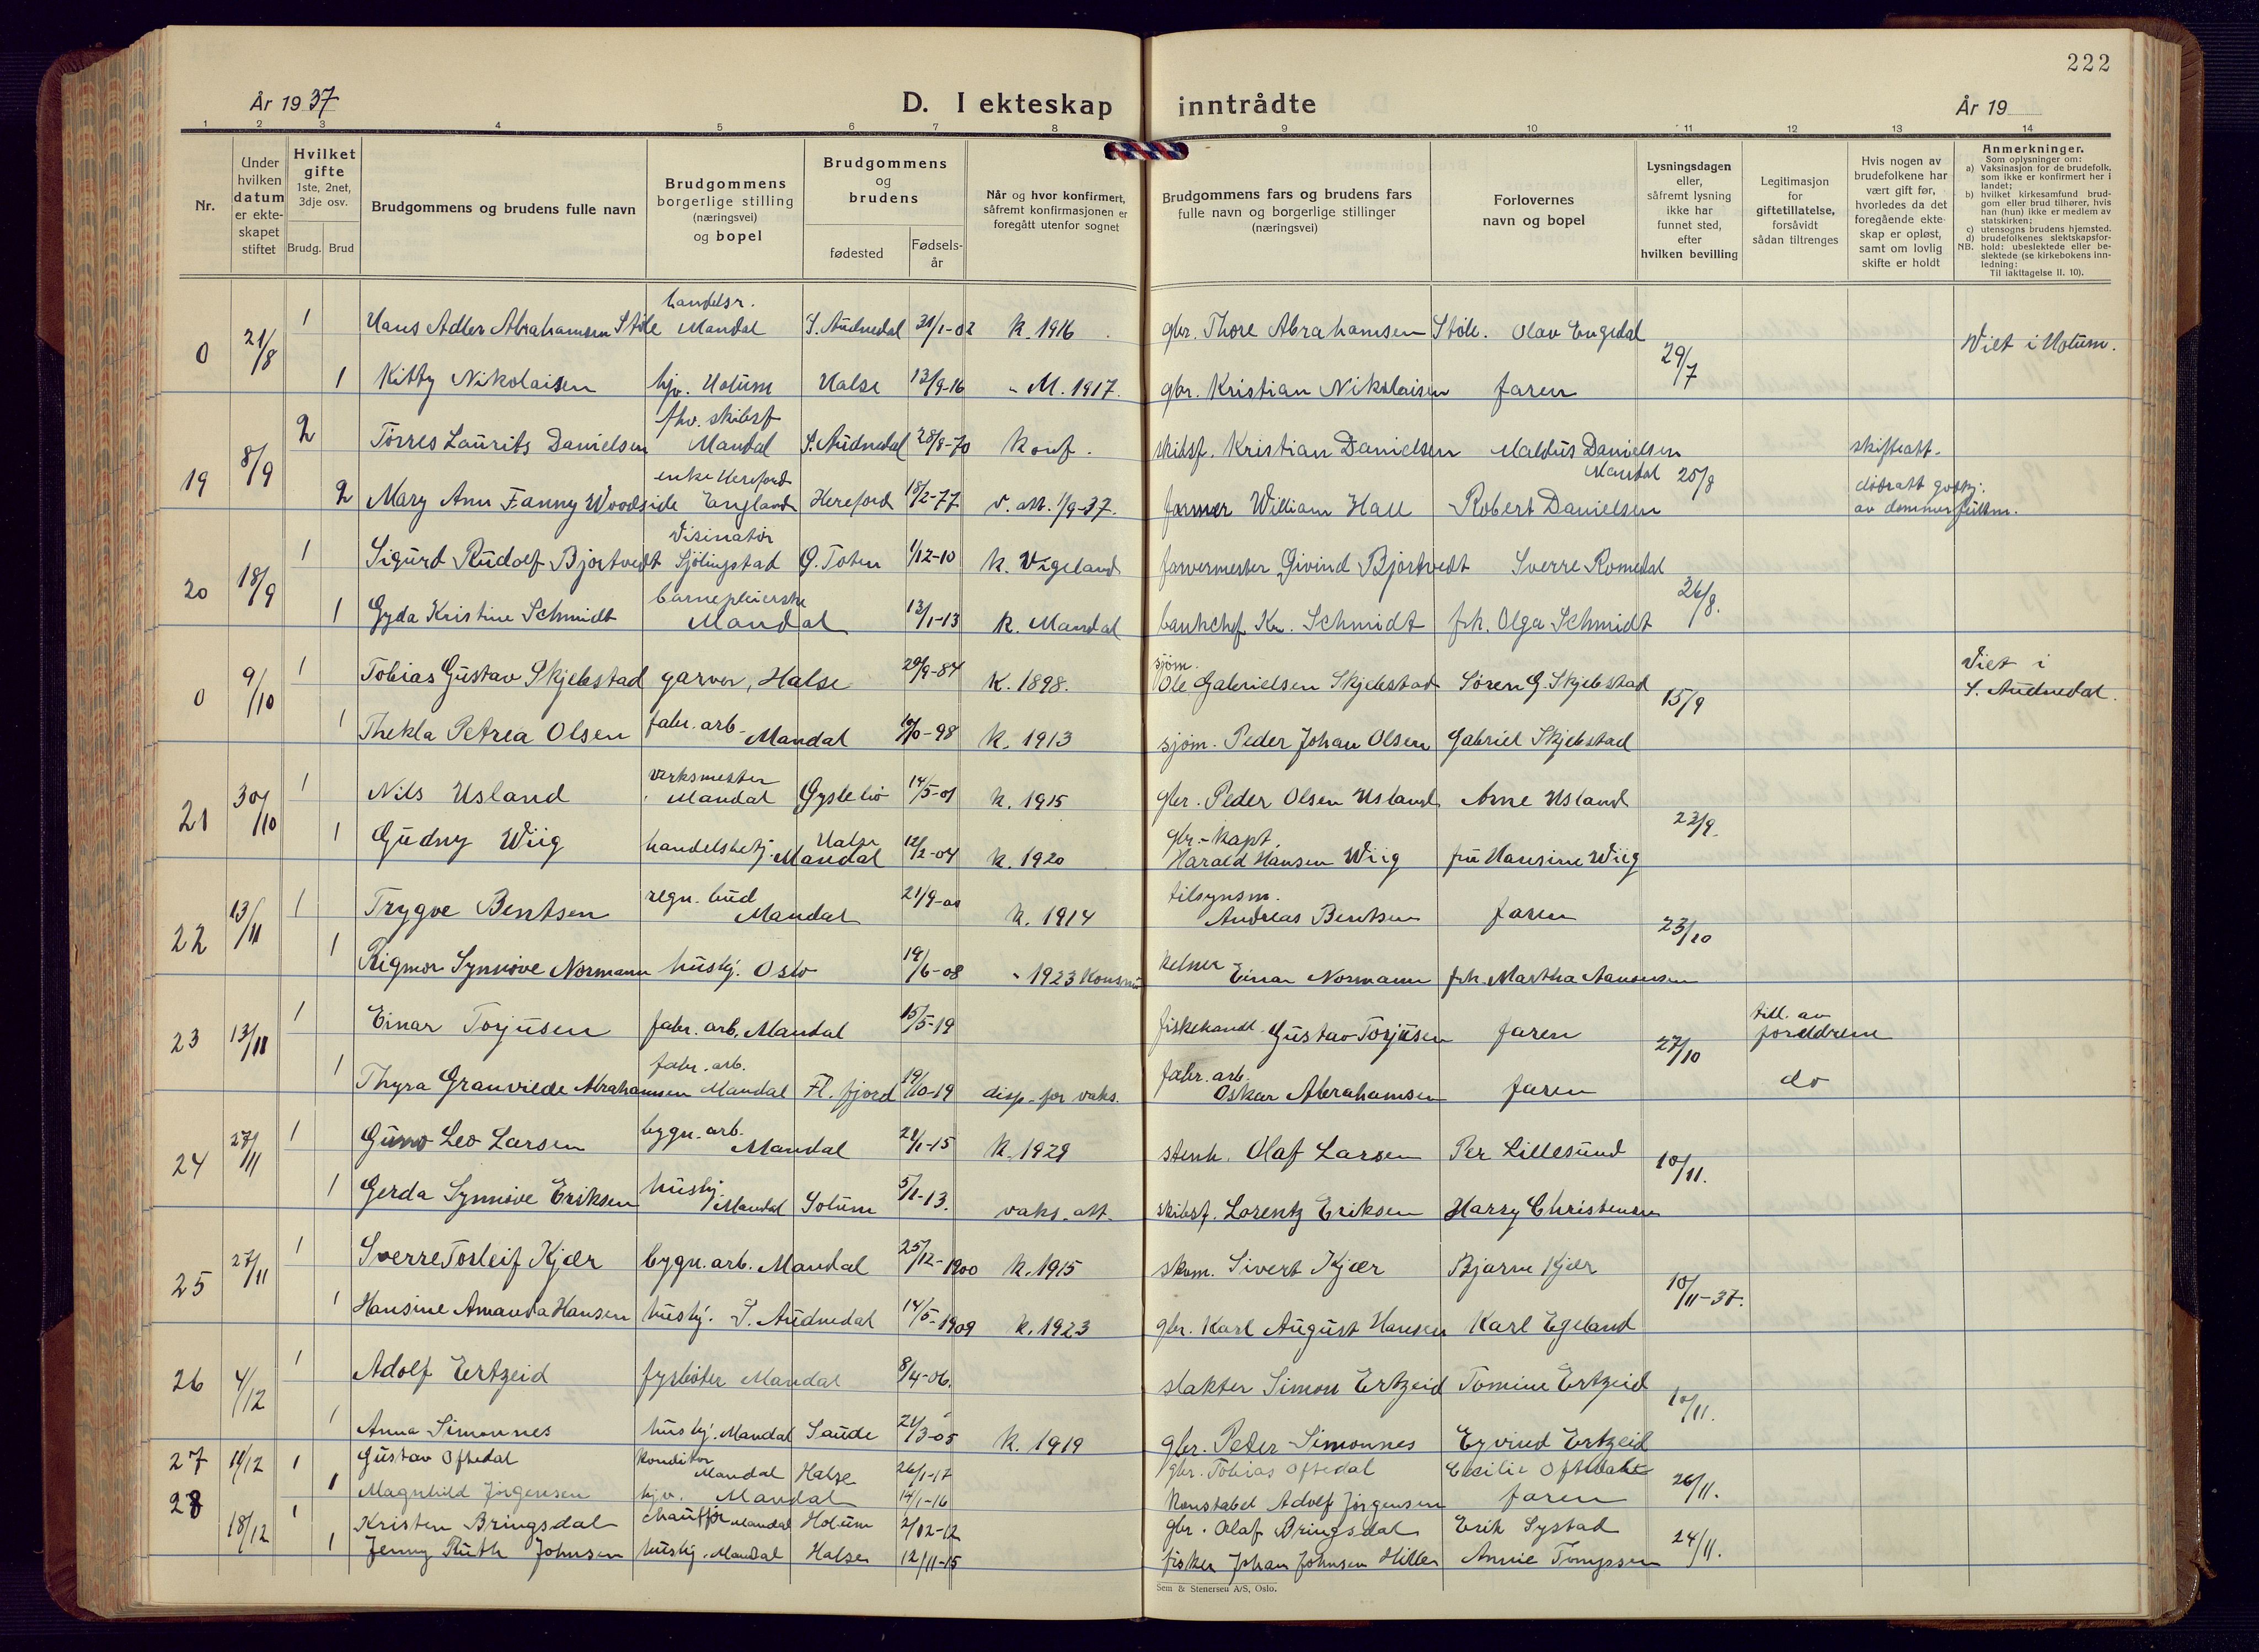 222
År 1937
D. I ekteskap inntrådte
År 19
1 2 3 4 5 6 7 8 9 10 11 12 13 14
Nr.
Under hvilken datum er ekte-skapet stiftet
Hvilket gifte 1ste, 2net, 3dje osv.
Brudg. Brud
Brudgommens og brudens fulle navn
Brudgommens borgerlige stilling (næringsvei) og bopel
Brudgommens og brudens
fødested
Fødsels-år
Når og hvor konfirmert, såfremt konfirmasjonen er foregått utenfor sognet
Brudgommens fars og brudens fars fulle navn og borgerlige stillinger (næringsvei)
Forlovernes navn og bopel
Lysningsdagen eller, såfremt lysning ikke har funnet sted, efter hvilken bevilling
Legitimasjon for giftetillatelse, forsåvidt sådan tiltrenges
Hvis nogen av brudefolkene har vært gift før, hvorledes da det foregående ekte-skap er opløst, samt om lovlig skifte er holdt
Anmerkninger.
Som oplysninger om:
a) Vaksinasjon for de brudefolk, som ikke er konfirmert her i landet;
b) hvilket kirkesamfund brud-gom eller brud tilhører, hvis han (hun) ikke er medlem av statskirken;
c) utensogns brudens hjemsted.
d) brudefolkenes slektskapsfor-
NB. hold: ubeslektede eller be-slektede (se kirkebokens inn-ledning:
Til iakttagelse II. 10).
0 21/8 1 Hans Adler Abrahamsen Støle handelsr. Mandal S. Audnedal 31/1-02 K. 1916 gbr. Thore Abrahamsen Støle. Olav Engedal 29/7 Viet i Holum.
1 Kitty Nikolaisen hjv. Holum Halse 13/9-16 - M. 1917. gbr. Kristian Nikolaisen faren
19 8/9 2 Torres Laurits Danielsen fhv. skibsf Mandal S. Audnedal 28/8-70 Konf. skibsf. Kristian Danielsen Maldus Danielsen Mandal 25/8 skifteatt.
2 Mary Ann Fanny Woodside enke Hereford England Hereford 18/2-77 v. att. 1/9-37. farmer William Hall Robert Danielsen dødsatt godkj. av dommerfullm.
20 18/9 1 Sigurd Rudolf Bjortvedt Sjølingstad Ø. Toten 1/12-10 K. Vigeland farvermester Eivind Bjortvedt Sverre Romedal 26/8.
1 Gyda Kristine Schmidt barnepleierske Mandal 13/1-13 K. Mandal bankchef Kr. Schmidt frk. Olga Schmidt
0 9/10 1 Tobias Gustav Skjebstad garver, Halse 29/9-84 K. 1898. sjøm. Ole Gabrielsen Skjebstad Søren G. Skjebstad 15/9 Viet i S. Audnedal.
1 Thekla Petrea Olsen fabr. arb. Mandal -98 K. 1913 sjøm. Peder Johan Olsen Gabriel Skjebstad
21 30/10 1 Nils Usland verksmester Mandal Øyslebø 14/5-01 K. 1915 gbr. Peder Olsen Usland Arne Usland 22/9.
1 Gudny Wiig handelsbetj. Halse Mandal 12/2-04 K. 1920 gbr.-Kapt. Harald Hansen Wiig fru Hansine Wiig
22 13/11 1 Trygve Bentsen regn. bud Mandal 21/9- K. 1914 tilsynsm. Andreas Bentsen faren 23/10
1 Rigmor Synnøve Normann hushj. Oslo 19/6-08 - 1923 kelner Einar Normann frk. Martha Aanensen
23 13/11 1 Einar Torjusen fabr. arb. Mandal 15/5-19 fiskehandl. Gustav Torjusen faren 27/10 till. av foreldrene
1 Thyra Granvilde Abrahamsen fabr. arb. Mandal Fl. fjord 19/10-19 disp. for vaks. fabr. arb. Oskar Abrahamsen faren do
24 27/11 1 Guno Leo Larsen bygn. arb. Mandal 21/1-15 K. 1929 stenh. Olaf Larsen Per Lillesund 10/11.
1 Gerda Synnøve Eriksen hushj. Mandal Solum 5/1-13. vaks. att. skibsf. Lorentz Eriksen Harry Christensen
25 27/11 1 Sverre Torleif Kjær bygn. arb. Mandal 25/12-1900 K. 1915 skom. Sivert Kjær Bjarne Kjær 10/11-37.
1 Hansine Amanda Hansen hushj. S. Audnedal 14/5-1909 K. 1923 gbr. Karl August Hansen Karl Egeland
26 4/12 1 Adolf Ertzeid fyrbøter Mandal 8/4-06. slakter Simon Ertzeid Tomine Ertzeid 10/11.
1 Anna Simonnes hushj. Mandal Saude 21/3-05 K. 1919 gbr. Peder Simonnes Eyvind Ertzeid
27 11/12 1 Gustav Oftedal Konditor Mandal Halse 26/1-17 gbr. Tobias Oftedal Cecilie Oftedal 26/11.
1 Magnhild Jørgensen hjv. Mandal 14/1-16 Konstabel Adolf Jørgensen faren
28 18/12 1 Kristen Bringsdal chauffør Mandal Holum 2/12-12 gbr. Olaf Bringsdal Erik Systad 24/11.
1 Jenny Ruth Johnsen hushj. Mandal Halse 12/11-15 fisker Johan Johnsen Hille Annie Tompson
Sem & Stenersen A/S, Oslo.